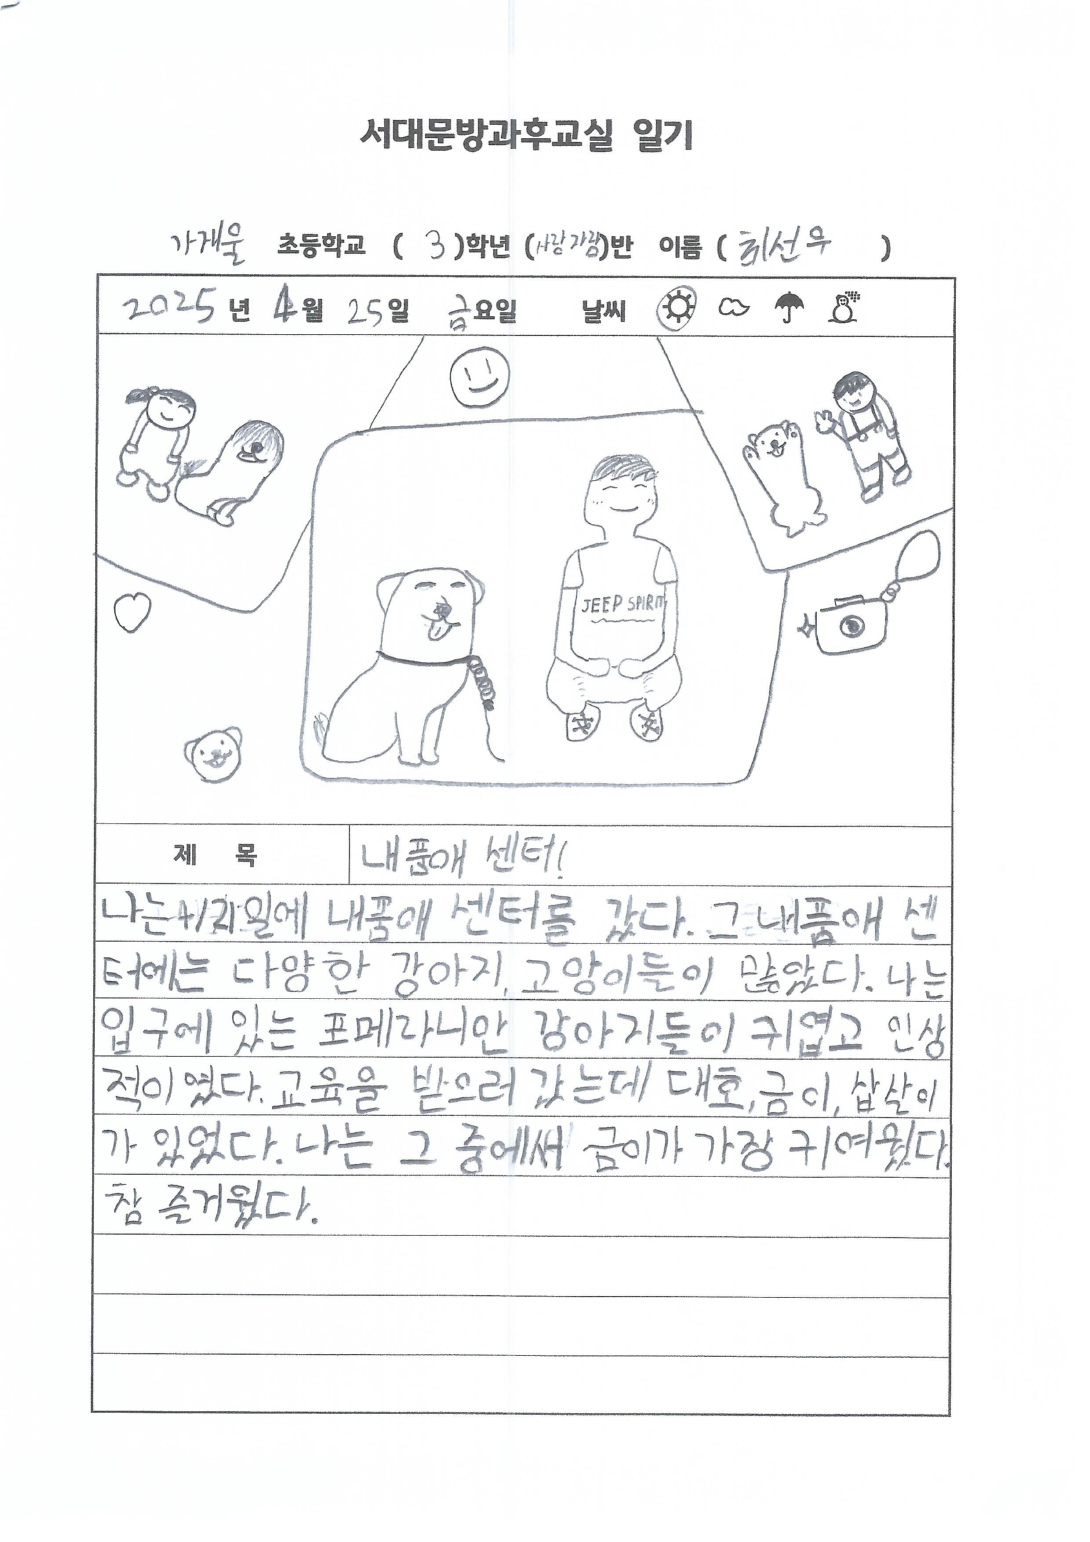 서대문방과후교실 일기
가재울 초등학교 ( 3 )학년 (사랑가람)반 이름 ( 최선우 )
2025년 4월 25일 금요일 날씨
JEEP SPIRIT
제 목 내품애 센터!
나는 4/21일에 내품애 센터를 갔다. 그 내품애 센
터에는 다양한 강아지, 고양이들이 많았다. 나는
입구에 있는 포메라니안 강아지들이 귀엽고 인상
적이였다. 교육을 받으러 갔는데 대호, 금이, 삽살이
가 있었다. 나는 그 중에써 금이가 가장 귀여웠다.
참 즐거웠다.